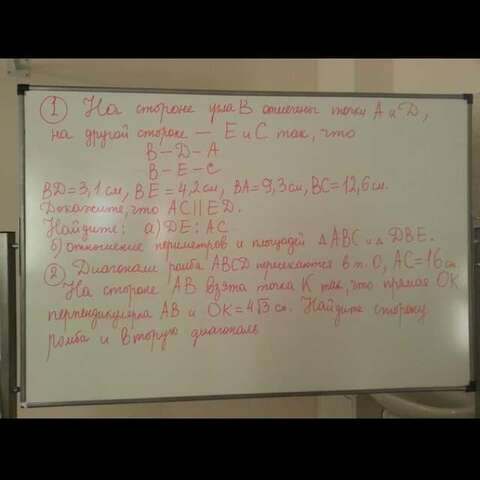 ① На стороне угла В отмечены точки А и D,
на другой стороне — Е и С так, что
В – D – А
В – Е – С
BD=3,1 см, BE=4,2 см, BA=9,3 см, BC=12,6 см.
Докажите, что AC||ED.
Найдите: а) DE:AC
б) отношение периметров и площадей △ABC и △DBE.
② Диагонали ромба ABCD пересекаются в т. О, AC=16 см
На стороне АВ взята точка К так, что прямая ОК
перпендикулярна АВ и ОК=4√3 см. Найдите сторону
ромба и вторую диагональ